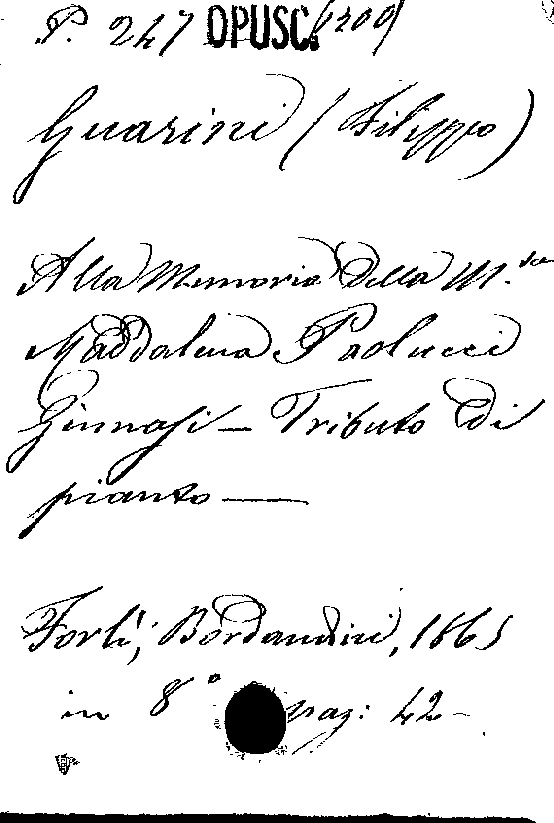 P. 247 OPUSC. (200)
Guarini (Filippo)
Alla Memoria della M.sa
Maddalena Paolucci
Ginnasi — Tributo di
pianto —
Forlì, Bordandini, 1865
in 8° pag: 42 -